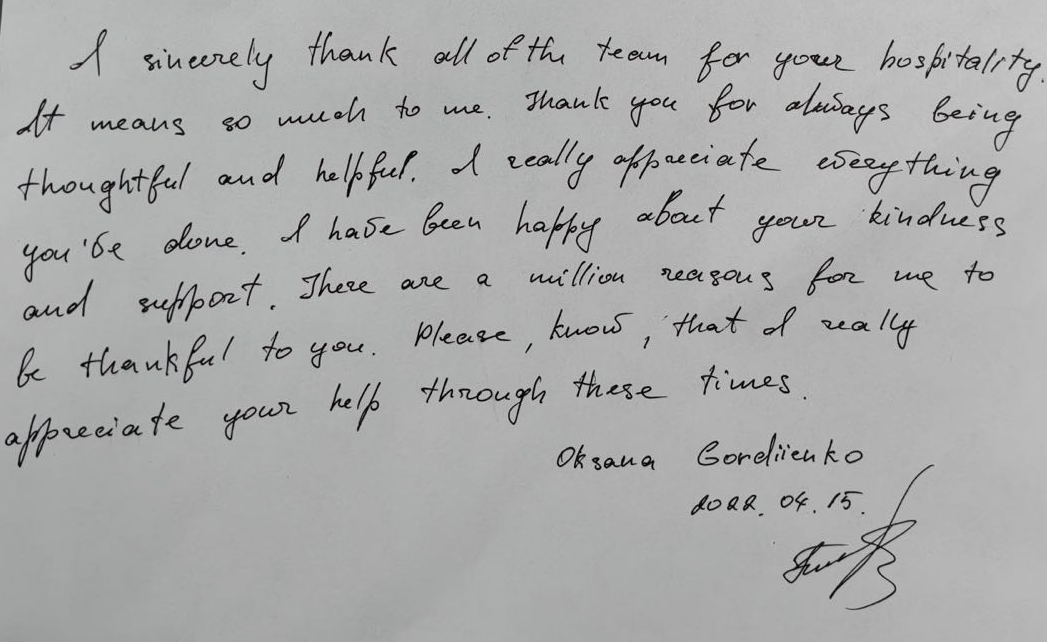 I sincerely thank all of the team for your hospitality.
It means so much to me. Thank you for always being
thoughtful and helpful. I really appreciate everything
you've done. I have been happy about your kindness
and support. There are a million reasons for me to
be thankful to you. Please, know, that I really
appreciate your help through these times.
Oksana Gordiienko
2022.04.15.